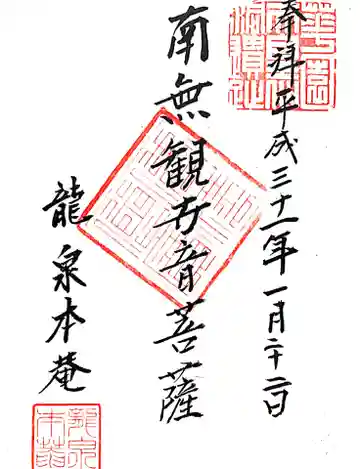 奉拝 平成三十一年一月二十二日
南無観世音菩薩
龍泉本菴
龍泉本菴